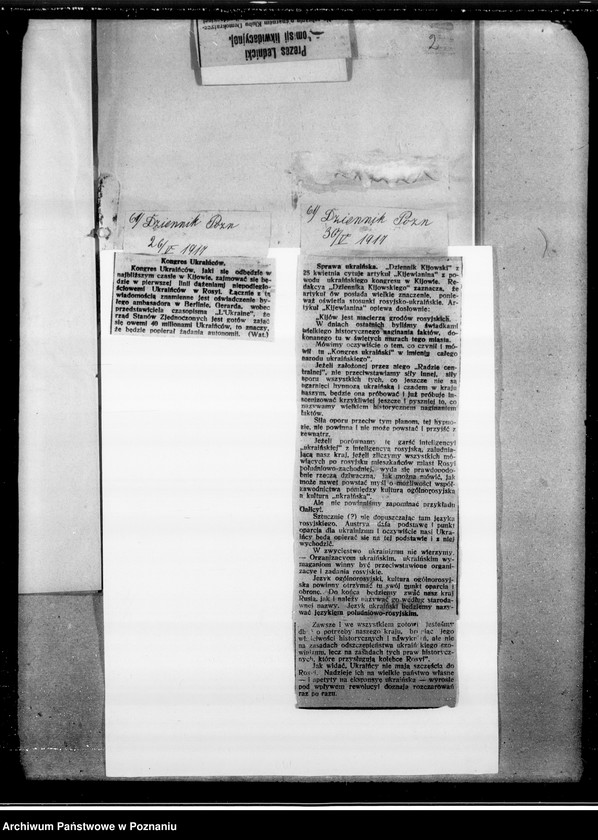 Prezes Lednicki
Komisji likwidacyjnej.
2
61/ Dziennik Pozn
26/V 1917
Kongres Ukraińców.
Kongres Ukraińców, jaki się odbędzie w
najbliższym czasie w Kijowie, zajmować się bę-
dzie w pierwszej linii dążeniami niepodległo-
ściowemi Ukraińców w Rosyi. Łącznie z tą
wiadomością znamienne jest oświadczenie by-
łego ambasadora w Berlinie, Gerarda, wobec
przedstawiciela czasopisma „L'Ukraine", że
rząd Stanów Zjednoczonych jest gotów zająć
się owemi 40 milionami Ukraińców, to znaczy,
że będzie popierał żądania autonomii. (Wat.)
61/ Dziennik Pozn
30/V 1917
Sprawa ukraińska. „Dziennik Kijowski" z
25 kwietnia cytuje artykuł „Kijewlanina" z po-
wodu ukraińskiego kongresu w Kijowie. Re-
dakcya „Dziennika Kijowskiego" zaznacza, że
artykuł ów posiada wielkie znaczenie, ponie-
waż oświetla stosunki rosyjsko-ukraińskie. Ar-
tykuł „Kijewlanina" opiewa dosłownie:
„Kijów jest macierzą grodów rosyjskich.
W dniach ostatnich byliśmy świadkami
wielkiego historycznego naginania faktów, do-
konanego tu w świętych murach tego miasta.
Mówimy oczywiście o tem, co czynił i mó-
wił tu „Kongres ukraiński" w imieniu całego
narodu ukraińskiego".
Jeżeli założonej przez niego „Radzie cen-
tralnej", nie przeciwstawimy siły innej, siły
oporu wszystkich tych, co jeszcze nie są
ogarnięci hypnozą ukraińską i czadem w kraju
naszym, będzie ona próbować i już próbuje in-
scenizować krzykliwiej jeszcze i pyszniej to, co
nazywamy wielkiem historycznem naginaniem
faktów.
Siła oporu przeciw tym planom, tej hypno-
zie, nie powinna i nie może powstać i przyjść z
zewnątrz.
Jeżeli porównamy tę garść inteligencyi
„ukraińskiej" z inteligencyą rosyjską, zaludnia-
jącą nasz kraj, jeżeli zliczymy wszystkich mó-
wiących po rosyjsku mieszkańców miast Rosyi
południowo-zachodniej, wyda się prawdopodo-
bnie rzeczą dziwaczną, jak można mówić, jak
może nawet powstać myśl o możliwości współ-
zawodnictwa pomiędzy kulturą ogólnorosyjską
a kulturą „ukraińską".
Ale nie powinniśmy zapominać przykładu
Galicyi.
Sztucznie (?) nie dopuszczając tam języka
rosyjskiego, Austrya dała podstawę i punkt
oparcia dla ukrainizmu i oczywiście nasi Ukra-
ińcy będą opierać się na tej podstawie i z niej
wychodzić.
W zwycięstwo ukrainizmu nie wierzymy.
— Organizacyom ukraińskim, ukraińskim wy-
maganiom winny być przeciwstawione organi-
zacye i żądania rosyjskie.
Język ogólnorosyjski, kultura ogólnorosyj-
ska powinny otrzymać tu swój punkt oparcia i
obronę. Do końca będziemy zwać nasz kraj
Rusią, jak i należy nazywać go według staroda-
wnej nazwy. Język ukraiński będziemy nazy-
wać językiem południowo-rosyjskim.
Zawsze i we wszystkiem gotowi jesteśmy
dbać o potrzeby naszego kraju, broniąc jego
właściwości historycznych i nawyknień, ale nie
na zasadach odszczepieństwa ukraińskiego szo-
winizmu, lecz na zasadach tych praw historycz-
nych, które przysługują kolebce Rosyi".
Jak widać, Ukraińcy nie mają szczęścia do
Rosyi. Nadzieje ich na wielkie państwo własne
— i apetyty na ekspansyę ukraińską — wyrosłe
pod wpływem rewolucyi doznają rozczarowań
raz po razu.
Archiwum Państwowe w Poznaniu